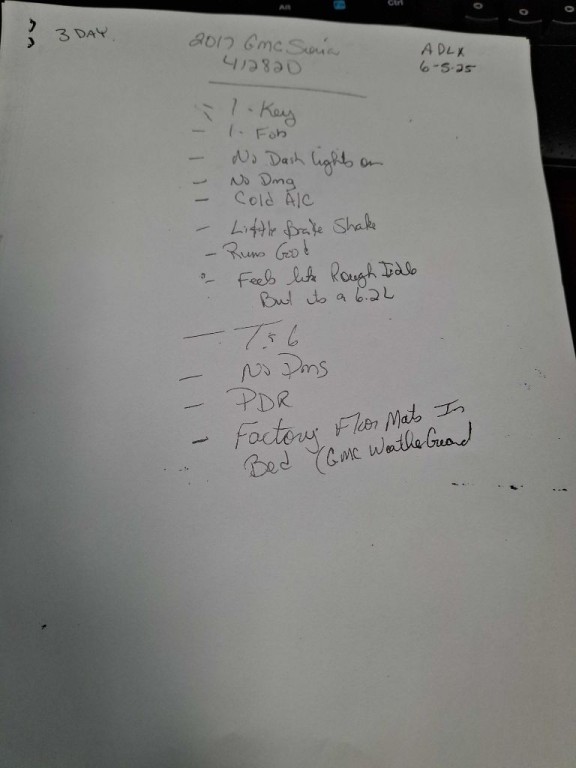 Alt
Ctrl
3 DAY.
2017 GMC Sierra
ADLX
412820
6-5-25
1 - Key
- 1 - Fob
- No Dash lights on
- No Dmg
- Cold A/C
- Little Brake Shake
- Runs Good
- Feels like Rough Idle
But its a 6.2L
- No Dmg
- PDR
- Factory Floor Mats In
Bed (GMC WeatherGuard